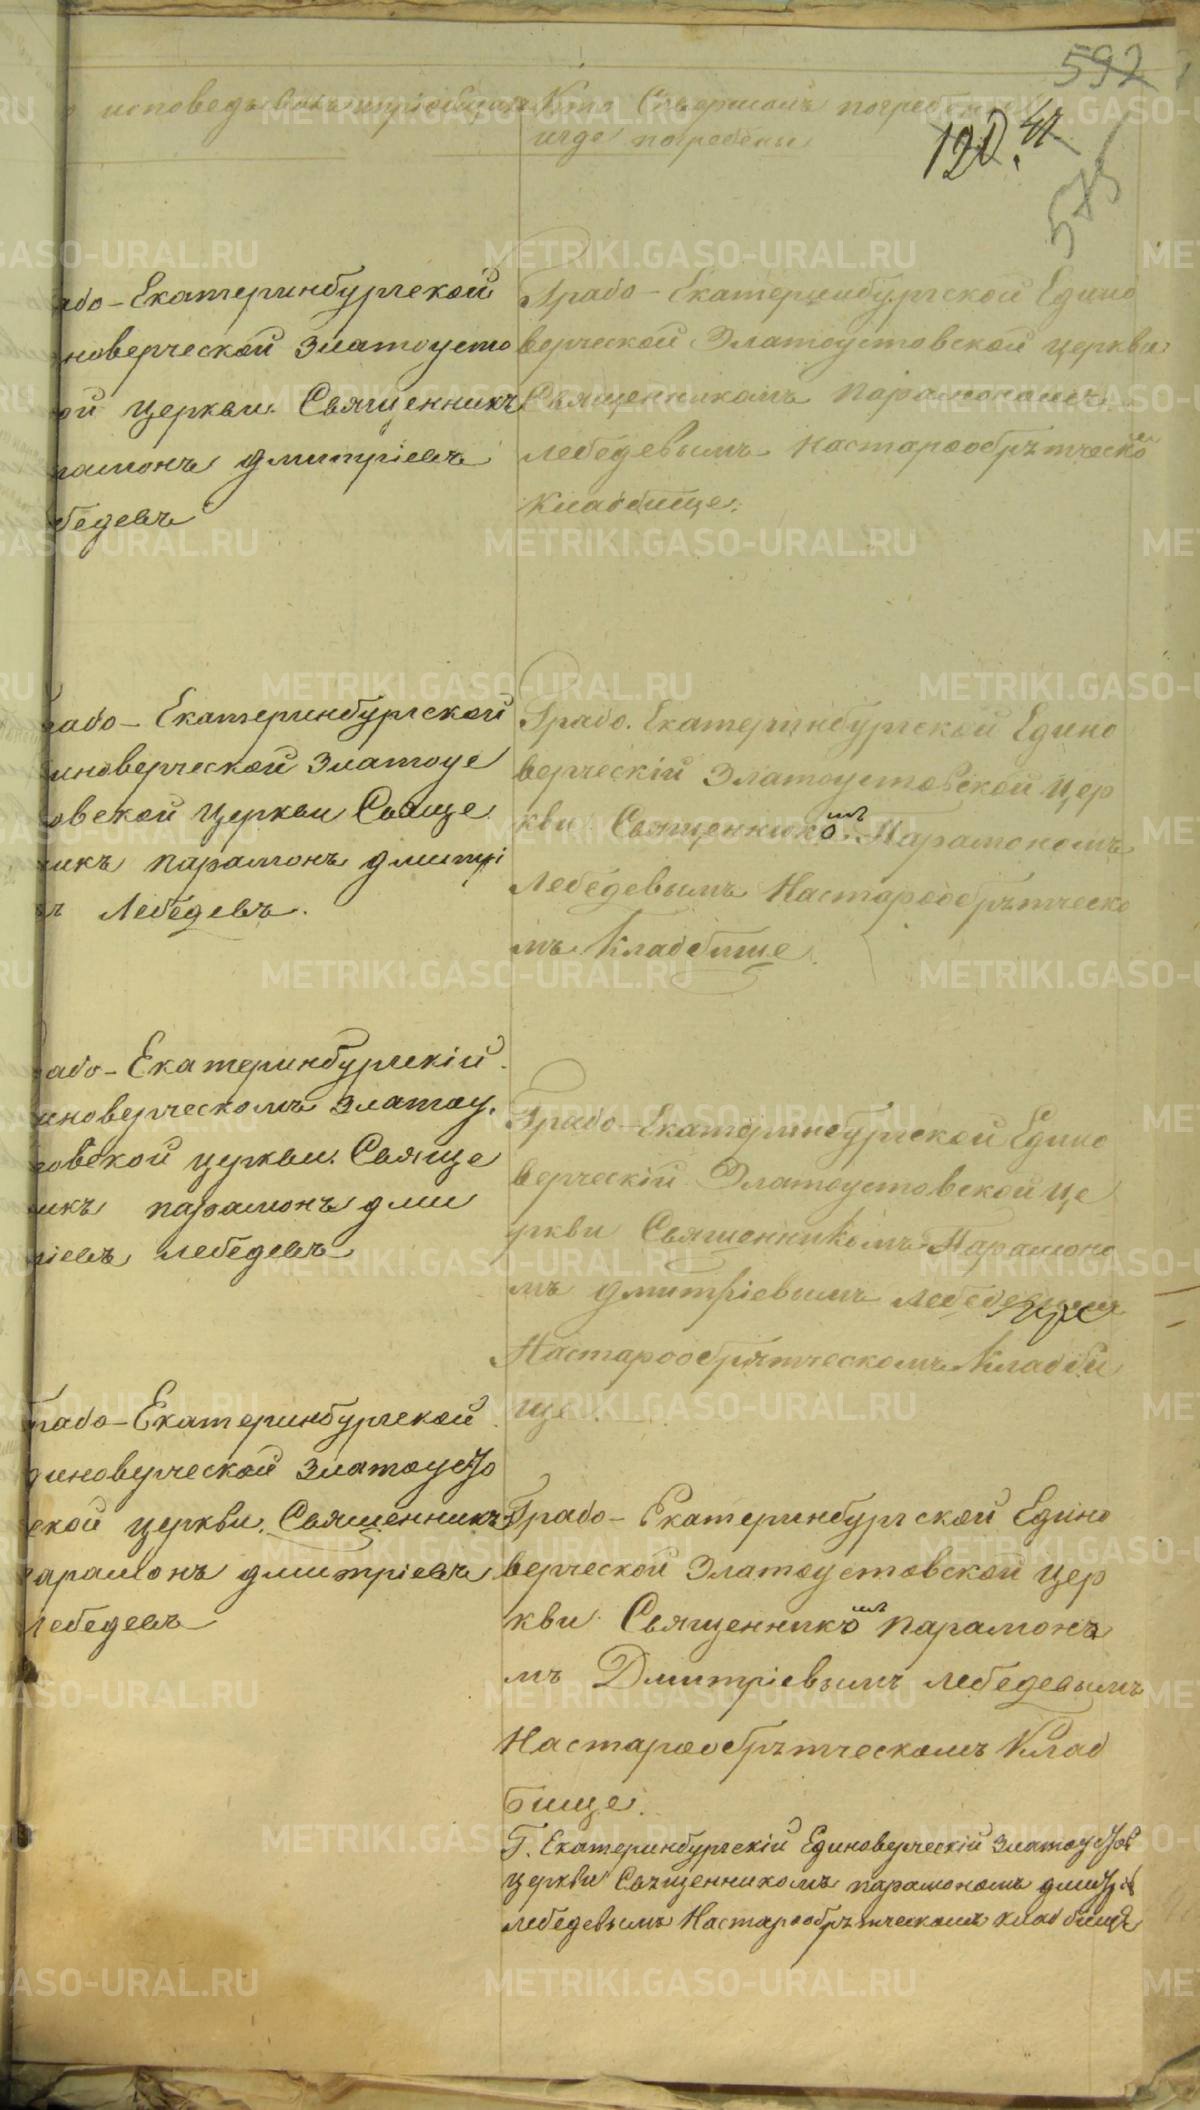 592
исповедывалъ и пріобщалъ
Кто Совершалъ погребеніе
и где погребены
120.
575
або-Екатеринбургской
новерческой Златоусто
ой церкви. Священникъ
рамонъ дмитріевъ
бедевъ
Градо-Екатеринбургской Едино
верческой Златоустовской церкви
Священникомъ Парамономъ
лебедевымъ настарообрътческо
Кладбище.
радо-Екатеринбургской
иноверческой Златоус
овской Церкви Свяще
икъ парамонъ дмитрі
ъ Лебедевъ.
Градо. Екатеринбургской Едино
верческій Златоустовской Цер
кви Священникомъ Парамономъ
Лебедевымъ Настарообрътческо
мъ Кладбище
або-Екатеринбургскій
иноверческомъ Златоу.
товской церкви. Свяще
икъ парамонъ дми
ріевъ лебедевъ
Градо-Екатеринбургской Едино
верческій Златоустовской це
ркви Священникомъ Парамоно
мъ дмитріевымъ лебедевымъ
Настарообрятческомъ Кладби
ще.
Градо-Екатеринбургской
диноверческой Златоусто
ской церкви. Священникъ
арамонъ дмитріевъ
лебедевъ
Градо-Екатеринбургской Едино
верческой Златоустовской цер
кви Священникомъ парамонъ
мъ Дмитріевымъ лебедевымъ
Настарообрътческомъ Клад
бище.
Г. Екатеринбургскій Единоверческій Златоустов
церкви Священникомъ парамономъ дмитрів
лебедевымъ Настарообрътческомъ кладбищъ
METRIKI.GASO-URAL.RU